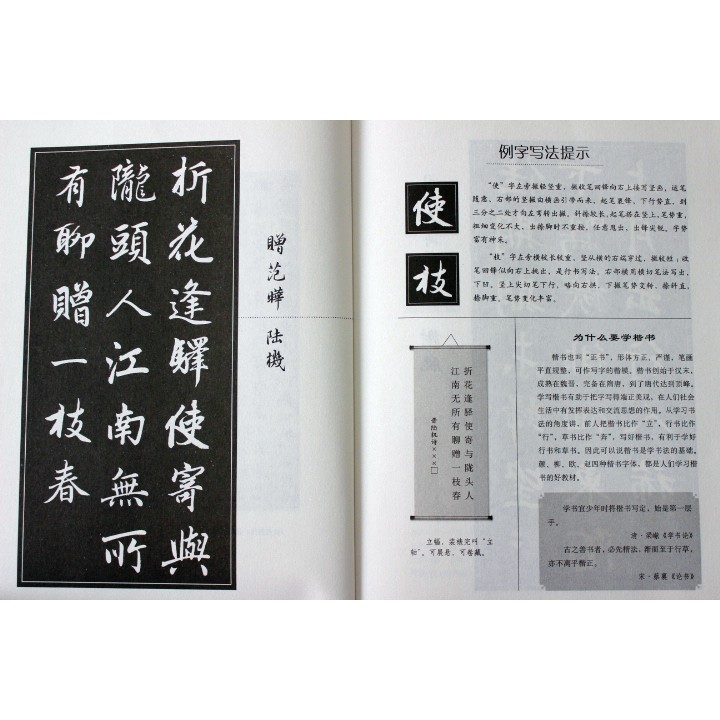 折花逢驛使寄與
隴頭人江南無所
有聊贈一枝春
贈范曄 陸機
例字写法提示
使
枝
“使”字左旁撇轻竖重，撇收笔回锋向右上接写竖画，运笔
随意。右部的竖撇由横画引带而来，起笔裹锋，下行劲直，到
三分之二处才向左弯转出撇。斜捺较长，起笔搭在竖上，笔势重，
粗细变化不大，出捺脚时不重按，任意甩出，出锋尖锐，字势
富有神采。
“枝”字左旁横较长较重，竖从横的右端穿过，撇较短，收
笔回锋似向右上挑出，是行书写法，右部横用横切笔法写出，
下凹。竖上尖切笔下行，略向右拱，下撇笔势变转，捺斜直，
捺脚重，笔势变化丰富。
折花逢驿使寄与陇头人
江南无所有聊赠一枝春
晋陆机诗×××□
立幅，装裱完叫“立
轴”。可展悬，可卷藏。
为什么要学楷书
楷书也叫“正书”，形体方正、严谨，笔画
平直规整，可作写字的楷模。楷书创始于汉末，
成熟在魏晋，完备在隋唐，到了唐代达到顶峰。
学写楷书有助于把字写得端正美观，在人们社会
生活中有发挥表达和交流思想的作用。从学习书
法的角度讲，前人把楷书比作“立”，行书比作
“行”，草书比作“奔”，写好楷书，有利于学好
行书和草书。因此可以说楷书是学书法的基础。
颜、柳、欧、赵四种楷书字体，都是人们学习楷书
的好教材。
学书宜少年时将楷书写定，始是第一层
手。
清·梁巘《学书论》
古之善书者，必先楷法，渐而至于行草，
亦不离乎楷正。
宋·蔡襄《论书》